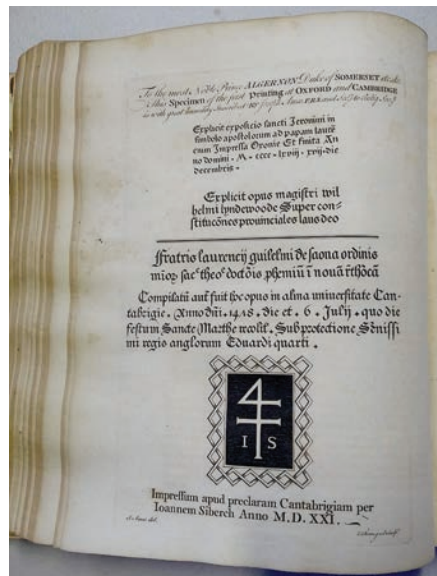 To the most Noble Prince ALGERNON Duke of SOMERSET &c. &c.
This Specimen of the first Printing at OXFORD and CAMBRIDGE
is with great humility Inscrib'd by Joseph Ames
Explicit expositio sancti Jeronimi in
simbolo apostolorum ad papam laurē
cium Impressa Oxonie Et finita An
no domini . M . cccc . lxviij . xvij . die
decembris .
Explicit opus magistri wil
helmi lyndewoode Super con-
stitucōnes prouinciales laus deo
Fratris laurencij guilelmi de saona ordinis
mioꝝ sac theo doctōis phemiū ī nouā rthōcā
Compilatū aūt fuit hoc opus in alma uniuersitate Can-
tabrigie . Anno dñi . 1478 . die et . 6 . Julij . quo die
festum Sancte Marthe recolit . Sub protectione Sēnissi
mi regis anglorum Eduardi quarti .
I S
Impressum apud preclaram Cantabrigiam per
Ioannem Siberch Anno M. D. XXI.
J. Ames del.